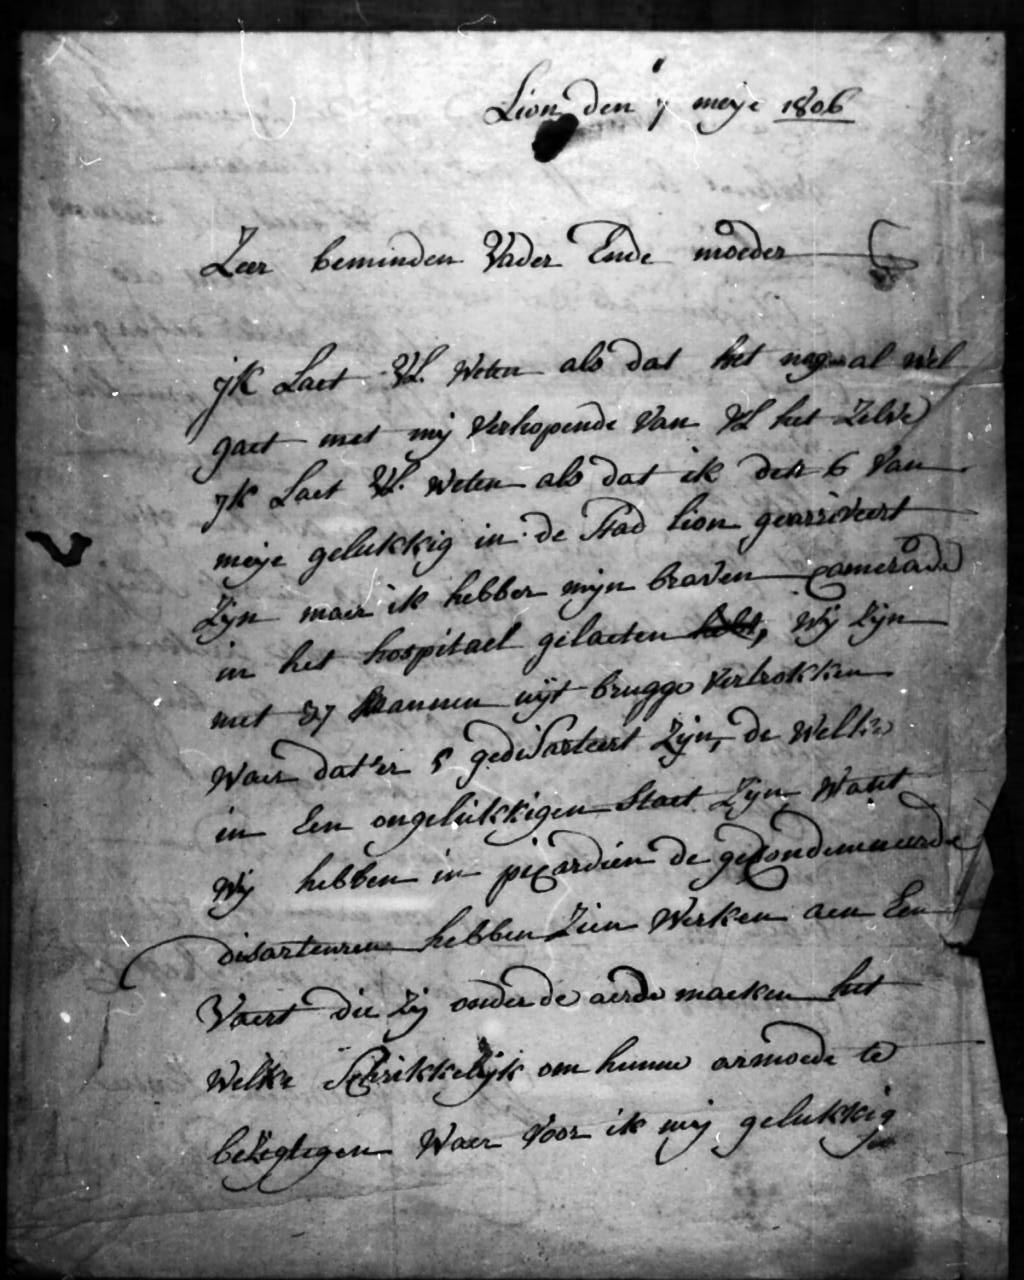 Lion den 7 meije 1806
Zeer beminden Vader Ende moeder
ijk Laet UL. Weten als dat het nog al wel
gaet met mij Verhopende Van UL het Zelve
ijk Laet UL. Weten als dat ik den 6 Van
meije gelukkig in de Stad lion gearriveert
Zijn maer ik hebben mijn braven Camerade
in het hospitael gelaeten hebt, Wij Zijn
met 87 Mannen uijt brugge Vertrokken
Waer dat'er 5 gedisarteert Zijn, de Welke
in Een ongelukkigen Staet Zijn Want
Wij hebben in picardien de gecondemneerde
disarteuren hebben Zien Werken aen Een
Vaert die Zij onder de aerde maeken het
Welke Schrikkelijk om hunne armoede te
beZigtigen Waer Voor ik mij gelukkig